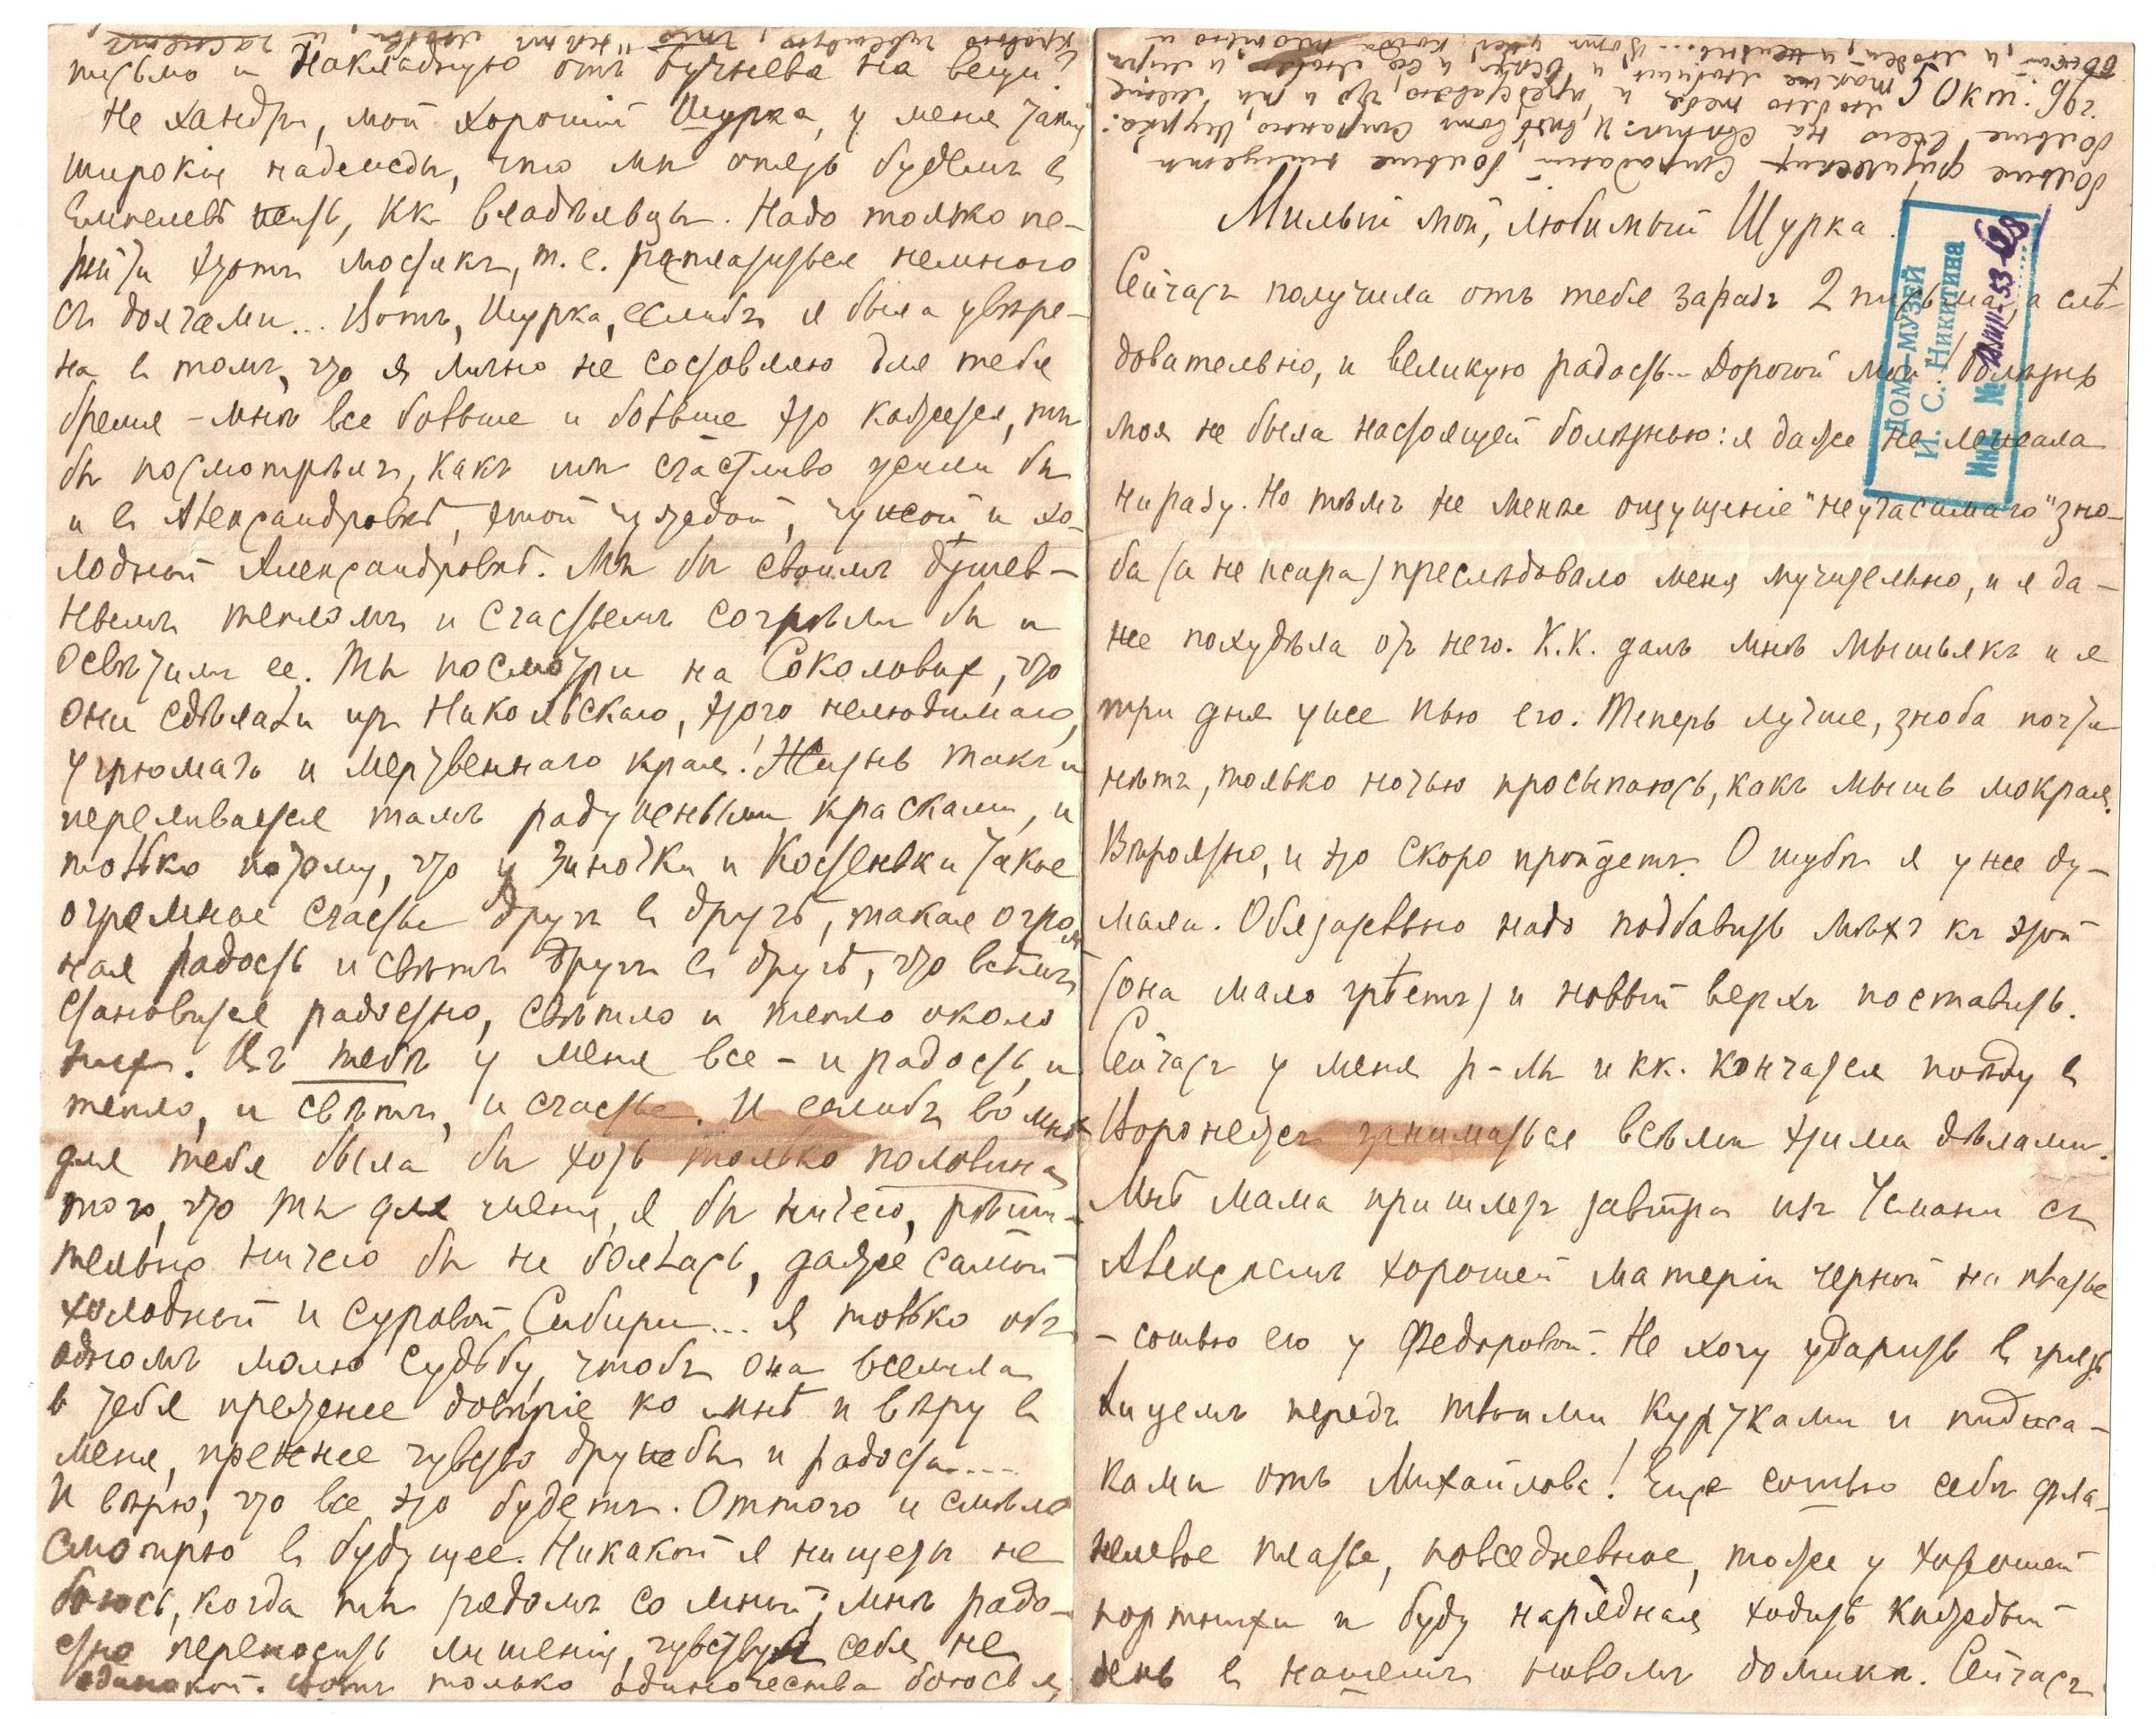 Милый мой, любимый Шурка.
Сейчасъ получила отъ тебя заразъ 2 письма, а слѣ-
довательно, и великую радость... Дорогой мой болѣзнь
моя не была настоящей болѣзнью: я даже не лежала
ни разу. Но тѣмъ не менѣе ощущеніе "неугасимаго" зно-
ба (а не жара) преслѣдовало меня мучительно, и я да-
же похудѣла отъ него. К.К. далъ мнѣ мышьякъ и я
три дня уже пью его. Теперь лучше, зноба почти
нѣтъ, только ночью просыпаюсь, какъ мышь мокрая.
Вѣроятно, и это скоро пройдетъ. О шубѣ я уже ду-
мала. Обязательно надо подбавить мѣхъ къ этой
(она мало грѣетъ) и новый верхъ поставить.
Сейчасъ у меня р-лъ и кк. кончатся поѣду в
Воронежъ заниматься всѣми этими дѣлами.
Мнѣ мама пришлетъ завтра изъ Усмани съ
Алексѣемъ хорошей матеріи черной на платье
- сошью его у Федоровой. Не хочу ударить в грязь
лицемъ передъ твоими куртками и пиджа-
ками отъ Михайлова! Еще сошью себѣ фла-
нелевое платье, повседневное, тоже у хорошей
портнихи и буду нарядная ходить каждый
день в нашемъ новомъ домикѣ. Сейчасъ
ДОМ-МУЗЕЙ
И. С. Никитина
Инв. №
письмо и накладную отъ на вещи.
Не хандри, мой хороший Шурка, у меня такія
широкія надежды, что мы опять будемъ в
жить, кк владѣльцы. Надо только пе-
рейти этотъ мостикъ, т.е. расплатиться немного
съ долгами... Вотъ, Шурка, еслибъ я была увѣре-
на в томъ, что я лично не составляю для тебя
бремя - мнѣ все больше и больше это кажется, ты
бы посмотрѣлъ, какъ мы счастливо жили бы
и в Александровкѣ, этой чуждой, чужой и хо-
лодной Александровкѣ. Мы бы своимъ душев-
нымъ тепломъ и счастьемъ согрѣли бы и
освѣтили ее. Ты посмотри на Соколовых, что
они сдѣлали изъ Никольскаго, этого нелюдимаго,
угрюмаго и мертвеннаго края! Жизнь такъ и
переливается тамъ радужными красками, и
только потому, что у Зиночки и Костеньки такое
огромное счастье друг в другѣ, такая огром
ная радость и свѣтъ другъ в другѣ, что всѣмъ
становится радостно, свѣтло и тепло около
них. Въ тебѣ у меня все - и радость, и
тепло, и свѣтъ, и счастье. И еслибъ во мнѣ
для тебя была бы хоть только половина
того, что ты для меня, я бы ничего, рѣши-
тельно ничего бы не боялась, даже самой
холодной и суровой Сибири... Я только объ
одномъ молю судьбу, чтобъ она вселила
в тебя прежнее довѣріе ко мнѣ и вѣру в
меня, прежнее чувство дружбы и радости....
И вѣрю, что все это будетъ. Оттого и смѣло
смотрю в будущее. Никакой я нищеты не
боюсь, когда ты рядомъ со мной, мнѣ радо-
стно переносить лишенія, чувствуя себя не
одинокой. только одиночества боюсь я,
больше физических страданий, больше нищеты,
больше всего на свѣтѣ. И вотъ странно, Шурка: